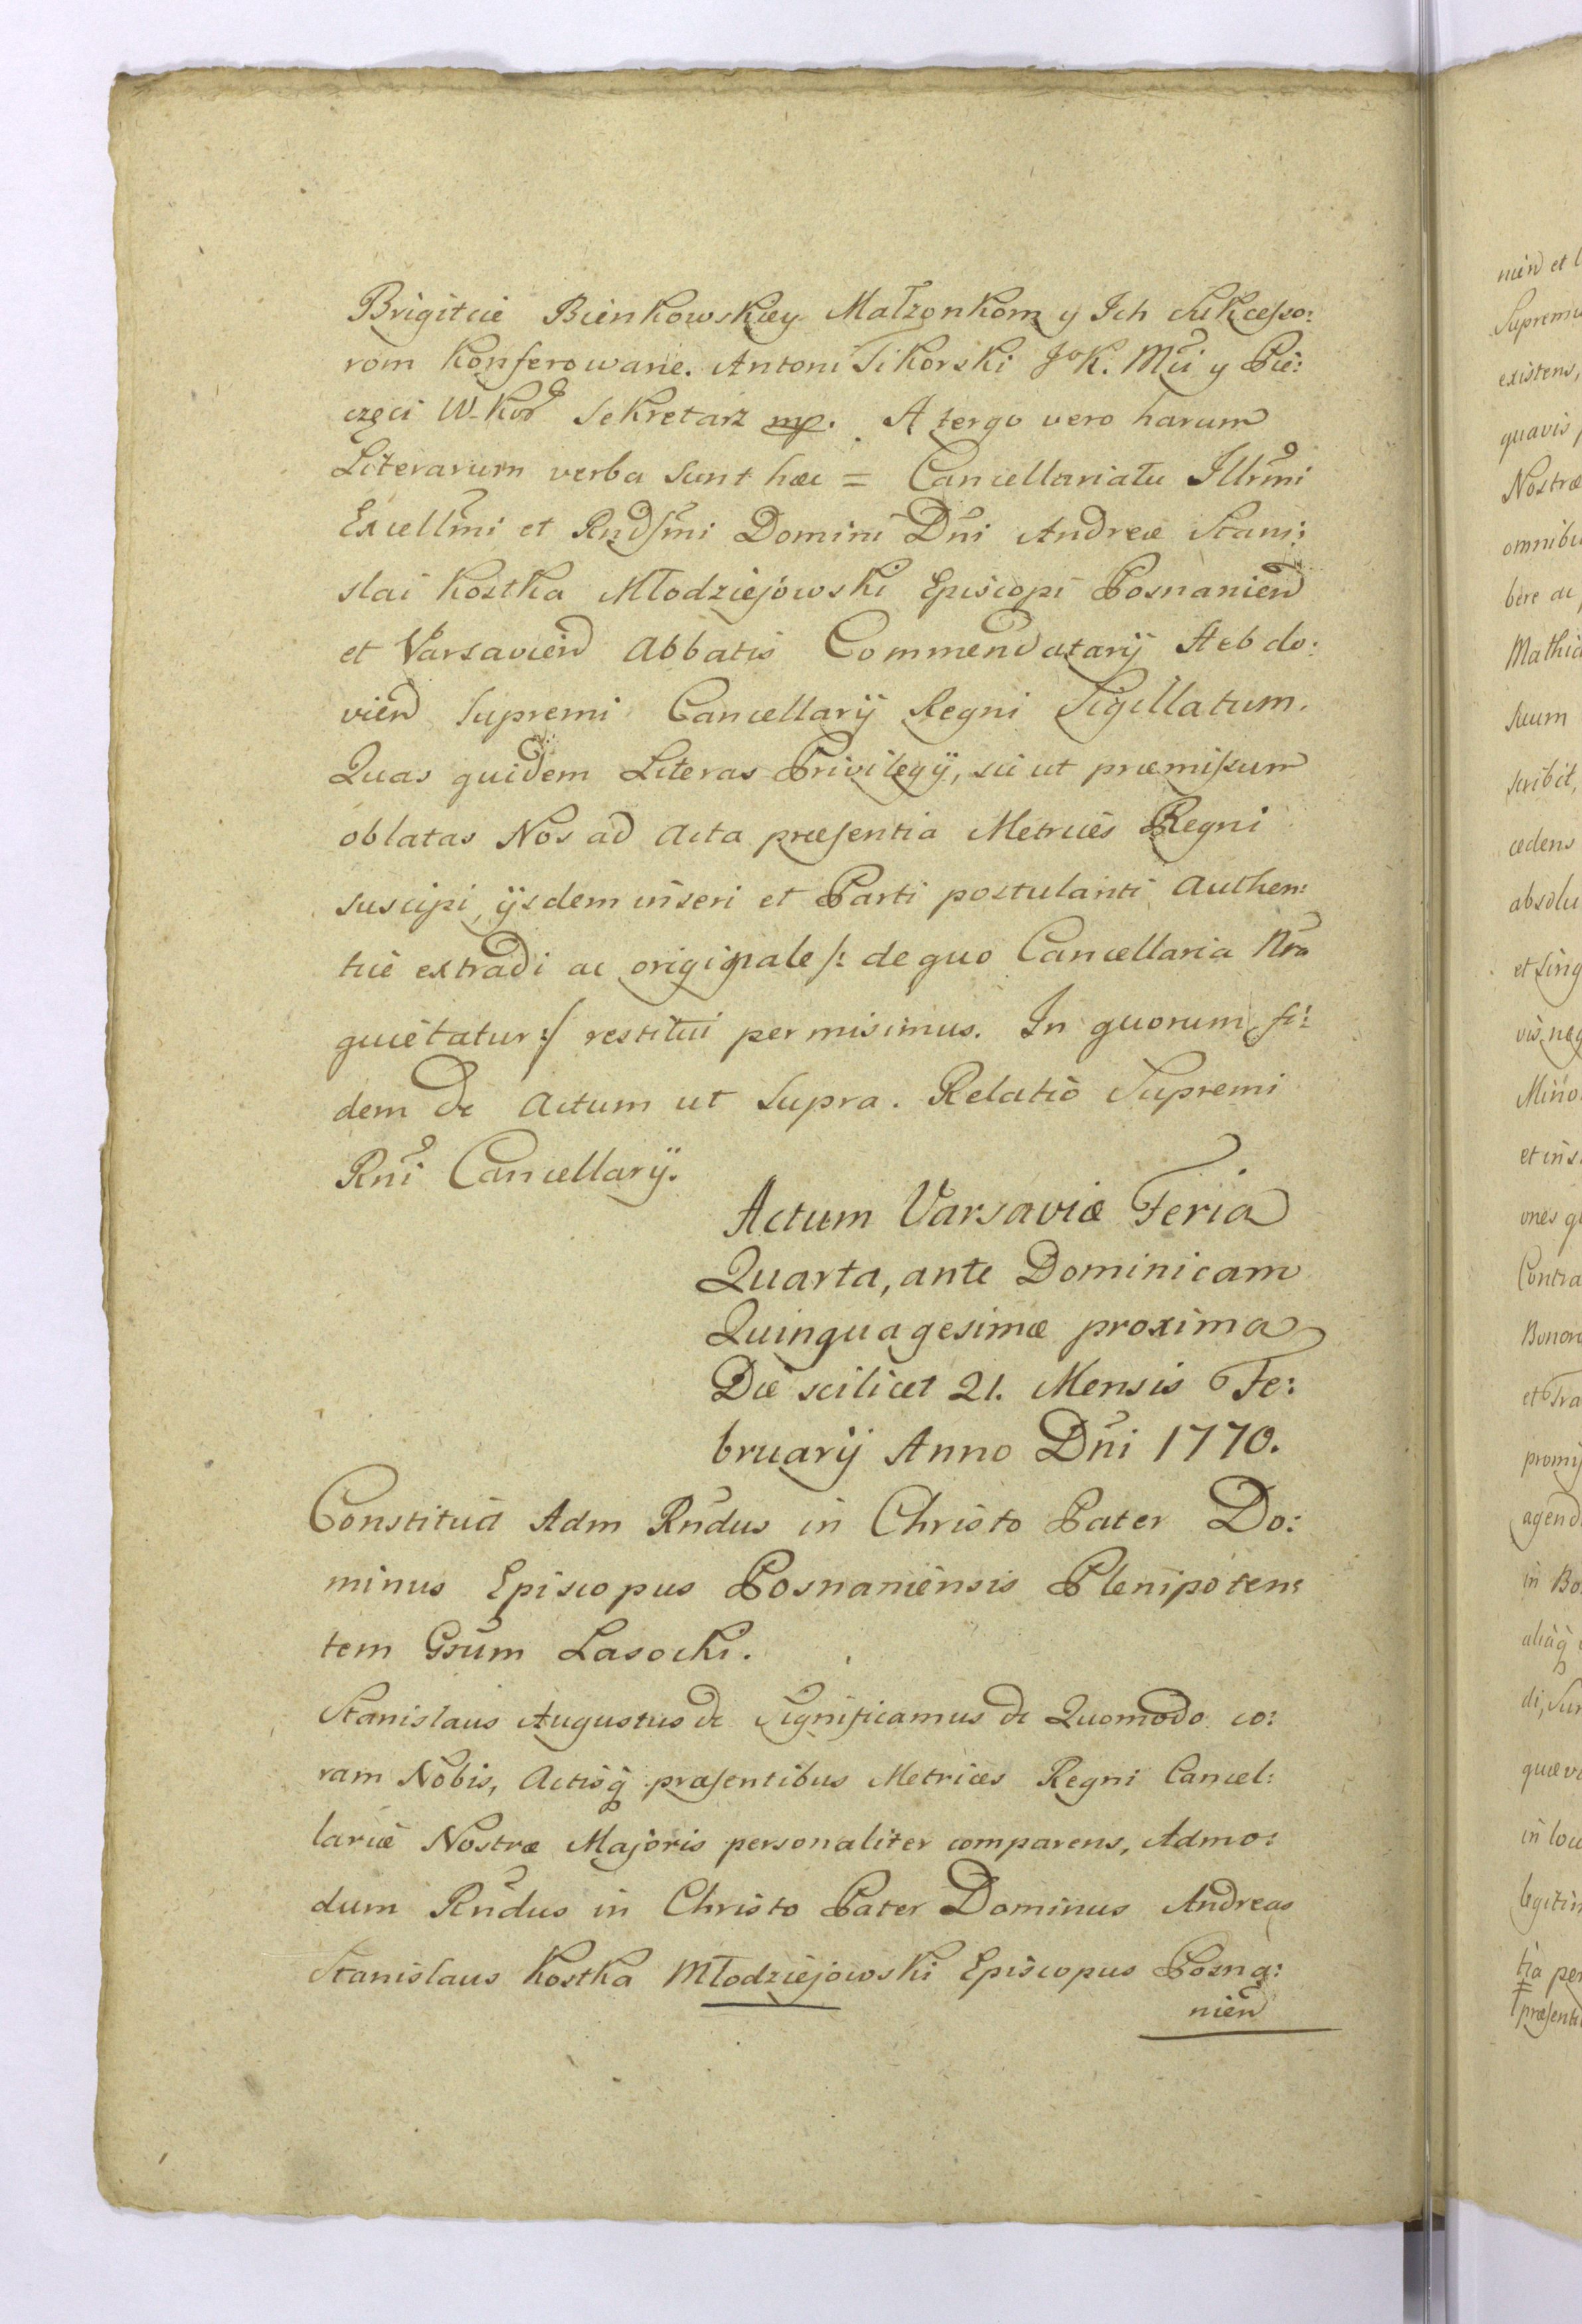 Brigitcie Bienkowskiey Małzonkom y Ich Sukcesso:
rom Konferowane. Antoni Sikorski J K. Mci y Pie:
częci W. Kor Sekretarz mp. A tergo vero harum
Literarum verba sunt hæc = Cancellariatu Illrmi
Excellmi et Rndssmi Domini Dni Andreæ Stani:
slai Kostka Młodziejowski Episcopi Posnanien
et Varsavien Abbatis Commendatarij Hebdo:
vien Supremi Cancellarij Regni Sigillatum.
Quas quidem Literas Privilegij, sic ut præmissum
oblatas Nos ad Acta præsentia Metrices Regni
suscipi, ijsdem inseri et Parti postulanti Authen:
tice extradi ac originale /: de quo Cancellaria Nra
quietatur :/ restitui permisimus. In quorum fi:
dem &c Actum ut Supra. Relatio Supremi
Rni Cancellarij.
Actum Varsaviæ Feria
Quarta, ante Dominicam
Quinquagesimæ proxima
Die scilicet 21. Mensis Fe:
bruarij Anno Dni 1770.
Constituit Adm Rndus in Christo Pater Do:
minus Episcopus Posnaniensis Plenipoten:
tem Gsum Lasocki.
Stanislaus Augustus &c Significamus &c Quomodo co:
ram Nobis, Actisq præsentibus Metrices Regni Cancel:
lariæ Nostræ Majoris personaliter comparens, Admo:
dum Rndus in Christo Pater Dominus Andreas
Stanislaus Kostka Młodziejowski Episcopus Posna:
nien
nien et
existens,
quavis
Nostræ
suum
scribit,
cedens
et sing
Contra
et Tra
agend
in Bo